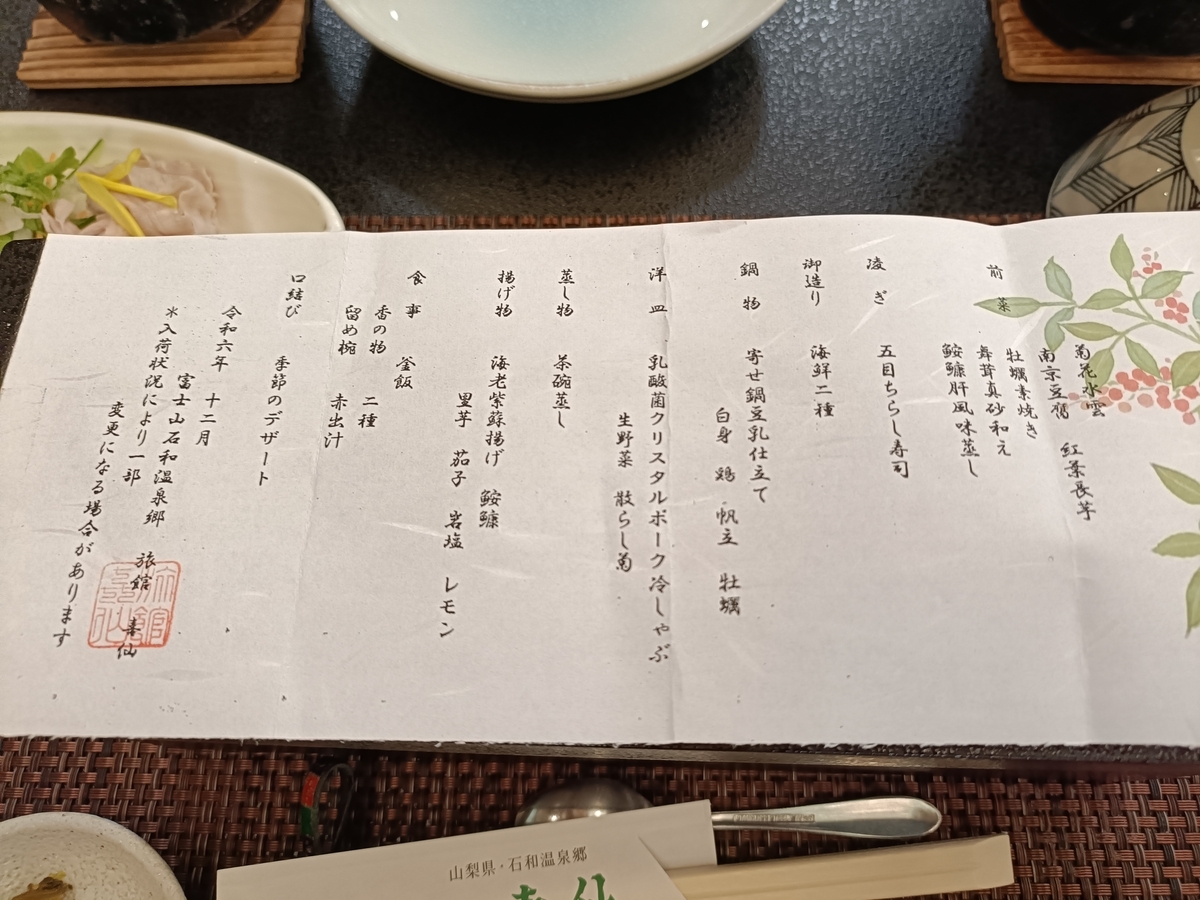 前菜
菊花水雲 紅葉長芋
南京豆腐
牡蠣素焼き
舞茸真砂和え
鮟鱇肝風味蒸し
凌ぎ
五目ちらし寿司
御造り
海鮮二種
鍋物
寄せ鍋豆乳仕立て
白身 鶏 帆立 牡蠣
洋皿
乳酸菌クリスタルポーク冷しゃぶ
生野菜 散らし菊
蒸し物
茶碗蒸し
揚げ物
海老紫蘇揚げ 鮟鱇
里芋 茄子 岩塩 レモン
食事
釜飯
香の物 二種
留め椀 赤出汁
口結び
季節のデザート
令和六年 十二月
富士山石和温泉郷 旅館 喜仙
＊入荷状況により一部
変更になる場合があります
旅館喜仙
山梨県・石和温泉郷